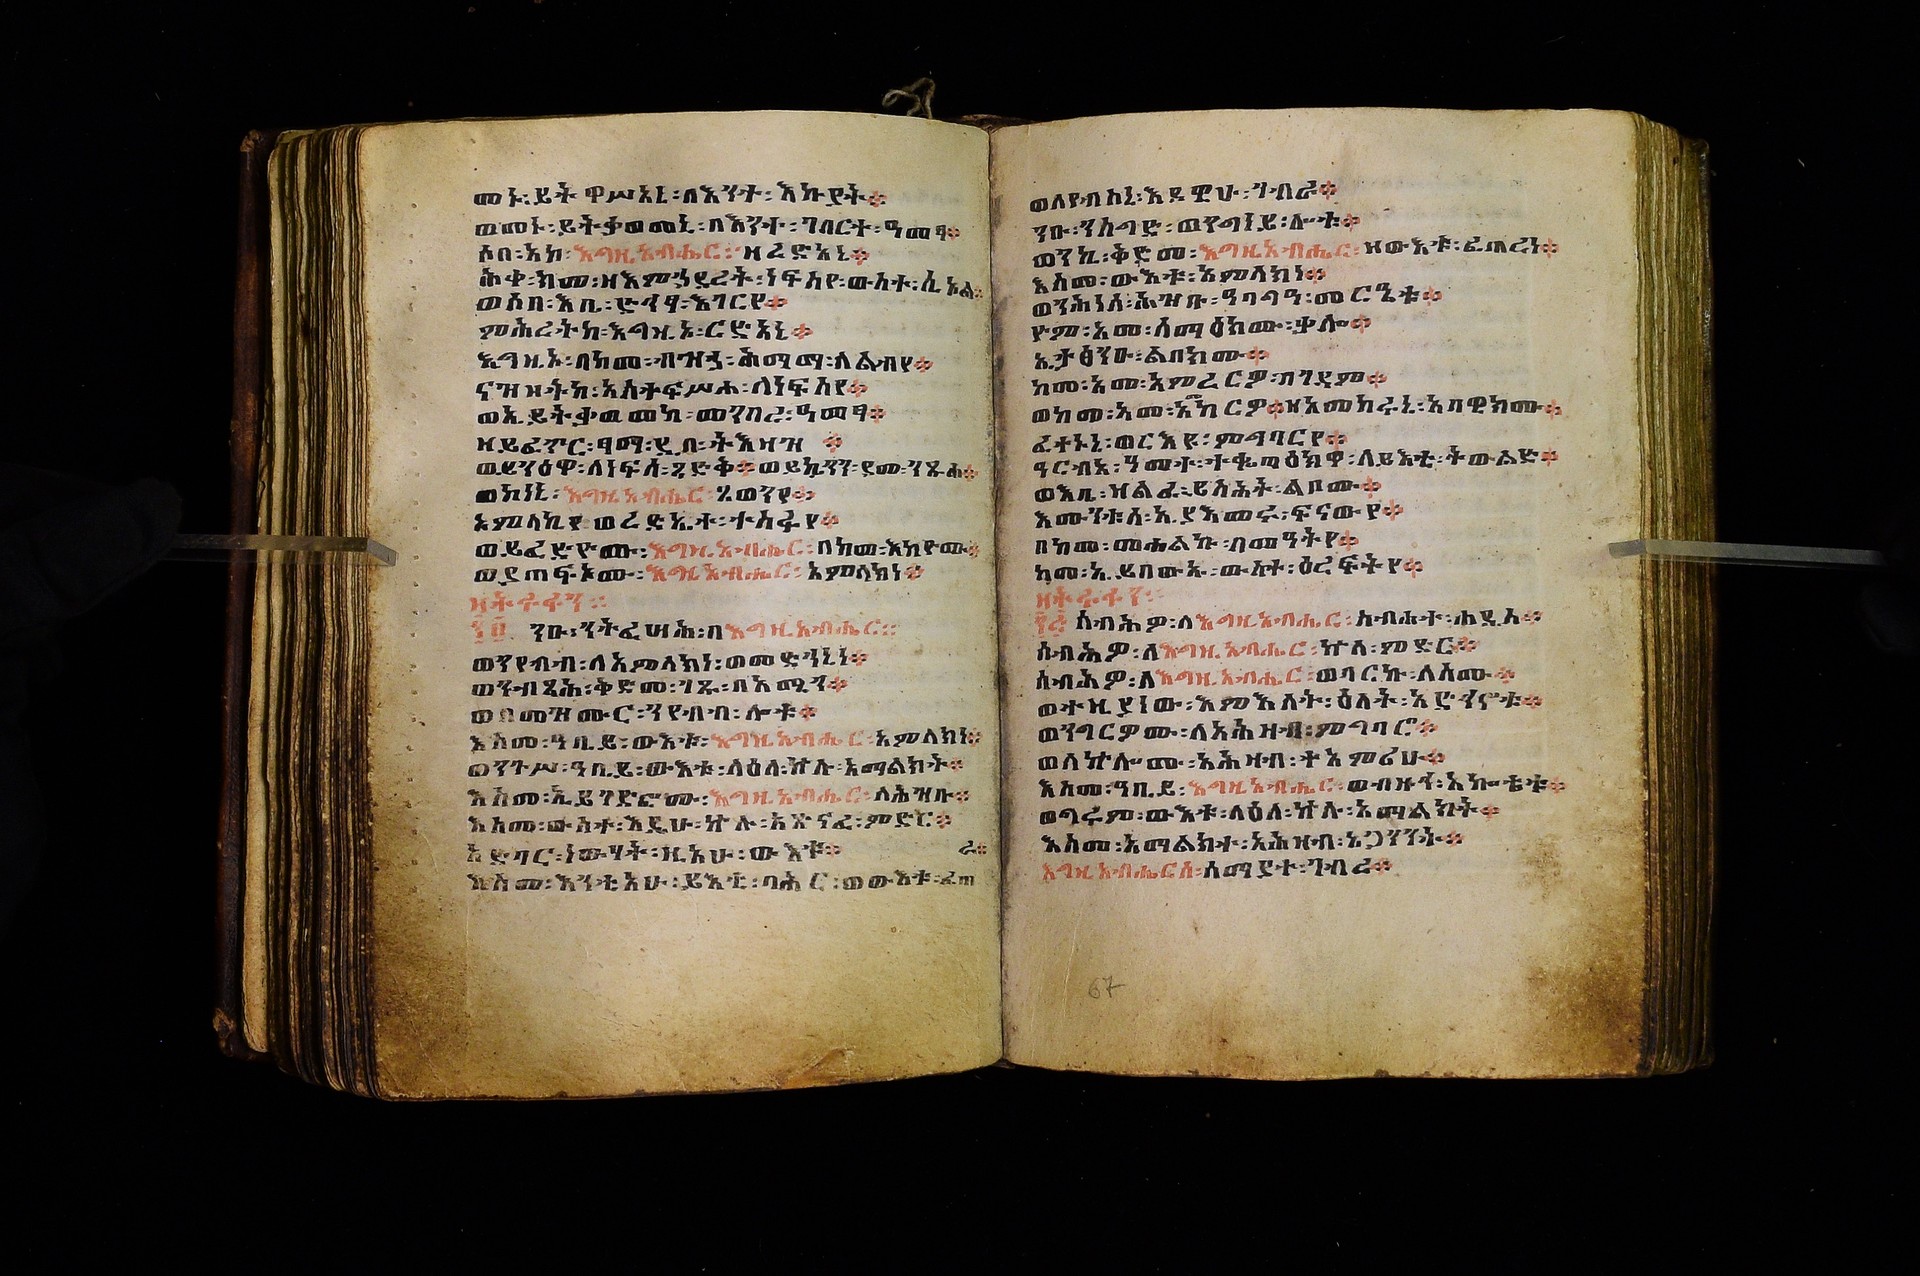 መኑ፡ይትዋሥአኒ፡በእንተ፡እኩያት፨
ወመኑ፡ይትቃወመኒ፡በእንተ፡ገበርተ፡ዓመፃ፨
ሶበ፡አኮ፡እግዚአብሔር፡ዘረድአኒ፨
ሕቀ፡ከመ፡ዘእምኃደረት፡ነፍስየ፡ውስተ፡ሲኦል፨
ወሶበ፡እቤ፡ድኅፃ፡እገርየ፨
ምሕረትከ፡እግዚኦ፡ርድአኒ፨
እግዚኦ፡በከመ፡ብዝኃ፡ሕማማ፡ለልብየ፨
ናዝዞትከ፡አስተፍሥሐ፡ለነፍስየ፨
ወኢይትቃወመከ፡መንበረ፡ዓመፃ፨
ዘይፈጥር፡ፃማ፡ዲበ፡ትእዛዝ፨
ወይንዕዋ፡ለነፍሰ፡ጻድቅ፨ወይኴንን፡ደመ፡ንጹሐ፨
ወኮነኒ፡እግዚአብሔር፡ጸወንየ፨
አምላኪየ፡ወረድኤተ፡ተስፋየ፨
ወይፈድዮሙ፡እግዚአብሔር፡በከመ፡እከዮሙ፨
ወያጠፍኦሙ፡እግዚአብሔር፡አምላክነ፨
፺፬ ንዑ፡ንትፈሣሕ፡በእግዚአብሔር፨
ወንየብብ፡ለአምላክነ፡ወመድኃኒነ፨
ወንብጻሕ፡ቅድመ፡ገጹ፡በአሚን፨
ወበመዝሙር፡ንየብብ፡ሎቱ፨
እስመ፡ዓቢይ፡ውእቱ፡እግዚአብሔር፡አምላክነ፨
ወንጉሥ፡ዓቢይ፡ውእቱ፡ላዕለ፡ኵሉ፡አማልክት፨
እስመ፡ኢይገድፎሙ፡እግዚአብሔር፡ለሕዝቡ፨
እስመ፡ውስተ፡እዴሁ፡ኵሉ፡አጽናፈ፡ምድር፨
አድባር፡ነዋኃት፡ዚአሁ፡ውእቱ፨ ራ፨
እስመ፡እንቲአሁ፡ይእቲ፡ባሕር፡ወውእቱ፡ፈጠ
ወለየብስኒ፡እደዊሁ፡ገብራ፨
ንዑ፡ንስግድ፡ወንግነይ፡ሎቱ፨
ወንብኪ፡ቅድመ፡እግዚአብሔር፡ዘውእቱ፡ፈጠረነ፨
እስመ፡ውእቱ፡አምላክነ፨
ወንሕነሰ፡ሕዝቡ፡ዓባግዓ፡መርዔቱ፨
ዮም፡እመ፡ሰማዕክሙ፡ቃሎ፨
ኢታፅንዑ፡ልበክሙ፨
ከመ፡አመ፡አምረርዎ፡በገዳም፨
ወከመ፡አመ፡አመከርዎ፨ዘአመከሩኒ፡አበዊክሙ፨
ፈተኑኒ፡ወርእዩ፡ምግባርየ፨
ዓርብዓ፡ዓመተ፡ተቈጣዕክዋ፡ለይእቲ፡ትውልድ፨
ወእቤ፡ዘልፈ፡ይስሕት፡ልበሙ፨
እሙንቱሰ፡ኢያእመሩ፡ፍናውየ፨
በከመ፡መሐልኩ፡በመዓትየ፨
ከመ፡ኢይበውኡ፡ውስተ፡ዕረፍትየ፨
፺፭ ሰብሕዎ፡ለእግዚአብሔር፡ስብሐተ፡ሐዲስ፨
ሰብሕዎ፡ለእግዚአብሔር፡ኵላ፡ምድር፨
ሰብሕዎ፡ለእግዚአብሔር፡ወባርኩ፡ለስሙ፨
ወተዜያነው፡እምዕለት፡ዕለት፡አድኅኖቱ፨
ወንግርዎሙ፡ለአሕዛብ፡ምግባሮ፨
ወለኵሎሙ፡አሕዛብ፡ተአምሪሁ፨
እስመ፡ዓቢይ፡እግዚአብሔር፡ወብዙኅ፡አኰቴቱ፨
ወግሩም፡ውእቱ፡ላዕለ፡ኵሉ፡አማልክት፨
እስመ፡አማልክተ፡አሕዛብ፡አጋንንት፨
እግዚአብሔርሰ፡ሰማያተ፡ገብረ፨
67